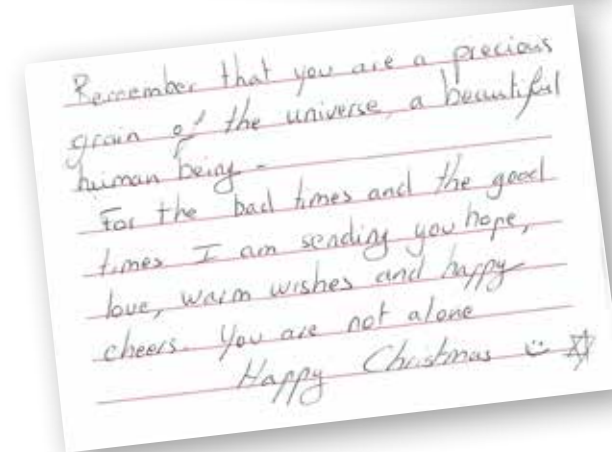 Remember that you are a precious
grain of the universe, a beautiful
human being -
For the bad times and the good
times I am sending you hope,
love, warm wishes and happy
cheers. You are not alone
Happy Christmas